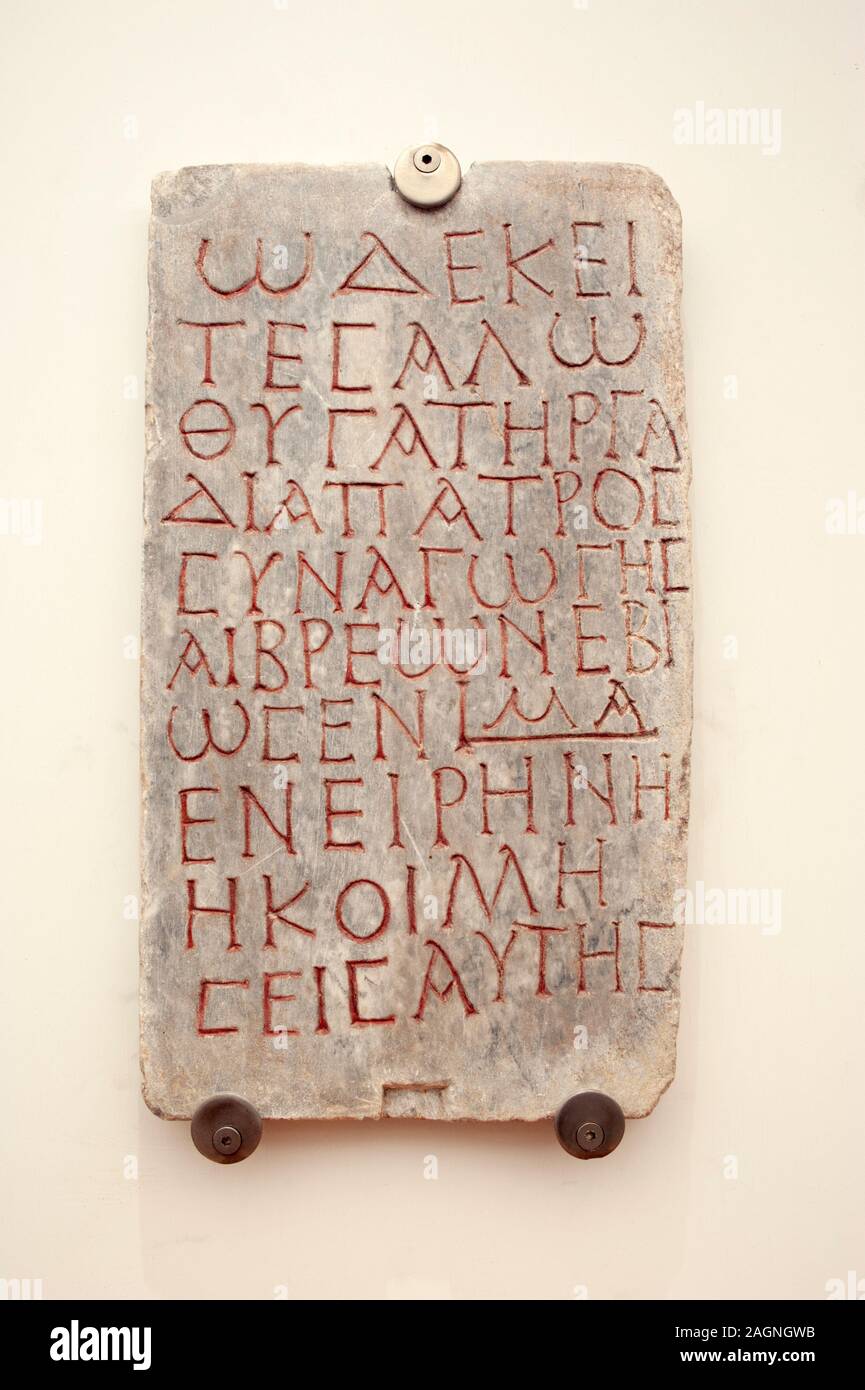 ΩΔΕΚΕΙ
ΤΕΣΑΛΩ
ΘΥΓΑΤΗΡΓΑ
ΔΙΑΠΑΤΡΟΣ
ΣΥΝΑΓΩΓΗΣ
ΑΙΒΡΕΩΝΕΒΙ
ΩΣΕΝΙΜΑ
ΕΝΕΙΡΗΝΗ
ΗΚΟΙΜΗ
ΣΕΙΣΑΥΤΗΣ
alamy
alamy
Image ID: 2AGNGWB
www.alamy.com